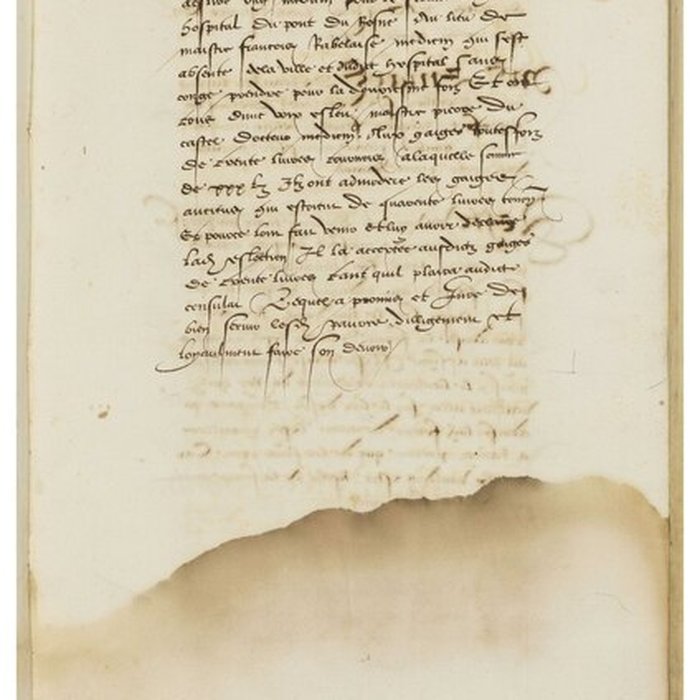 hospital du pont du Rosne Au lieu de
maistre francoys Rabelaise medecin qui sest
absente de la ville et dudict hospital sans
conge prendre pour la deuxiesme foys Et ont
tous dune voix esleu maistre pierre du
castel docteur medecin Aux gaiges toutesfoys
de trente livres tournois a laquelle somme
de xxx l. Ilz ont admodere les gaiges
qui estoient de quarente livres tourn.
Et pource lont fait venir et luy avoir declaire
lad. eslection Il la acceptee ausdictz gaiges
de trente livres tant quil plaira audict
consulat Lequel a promis et Jure de
bien servir lesd. pauvres dilligemment et
loyaulment faire son devoir